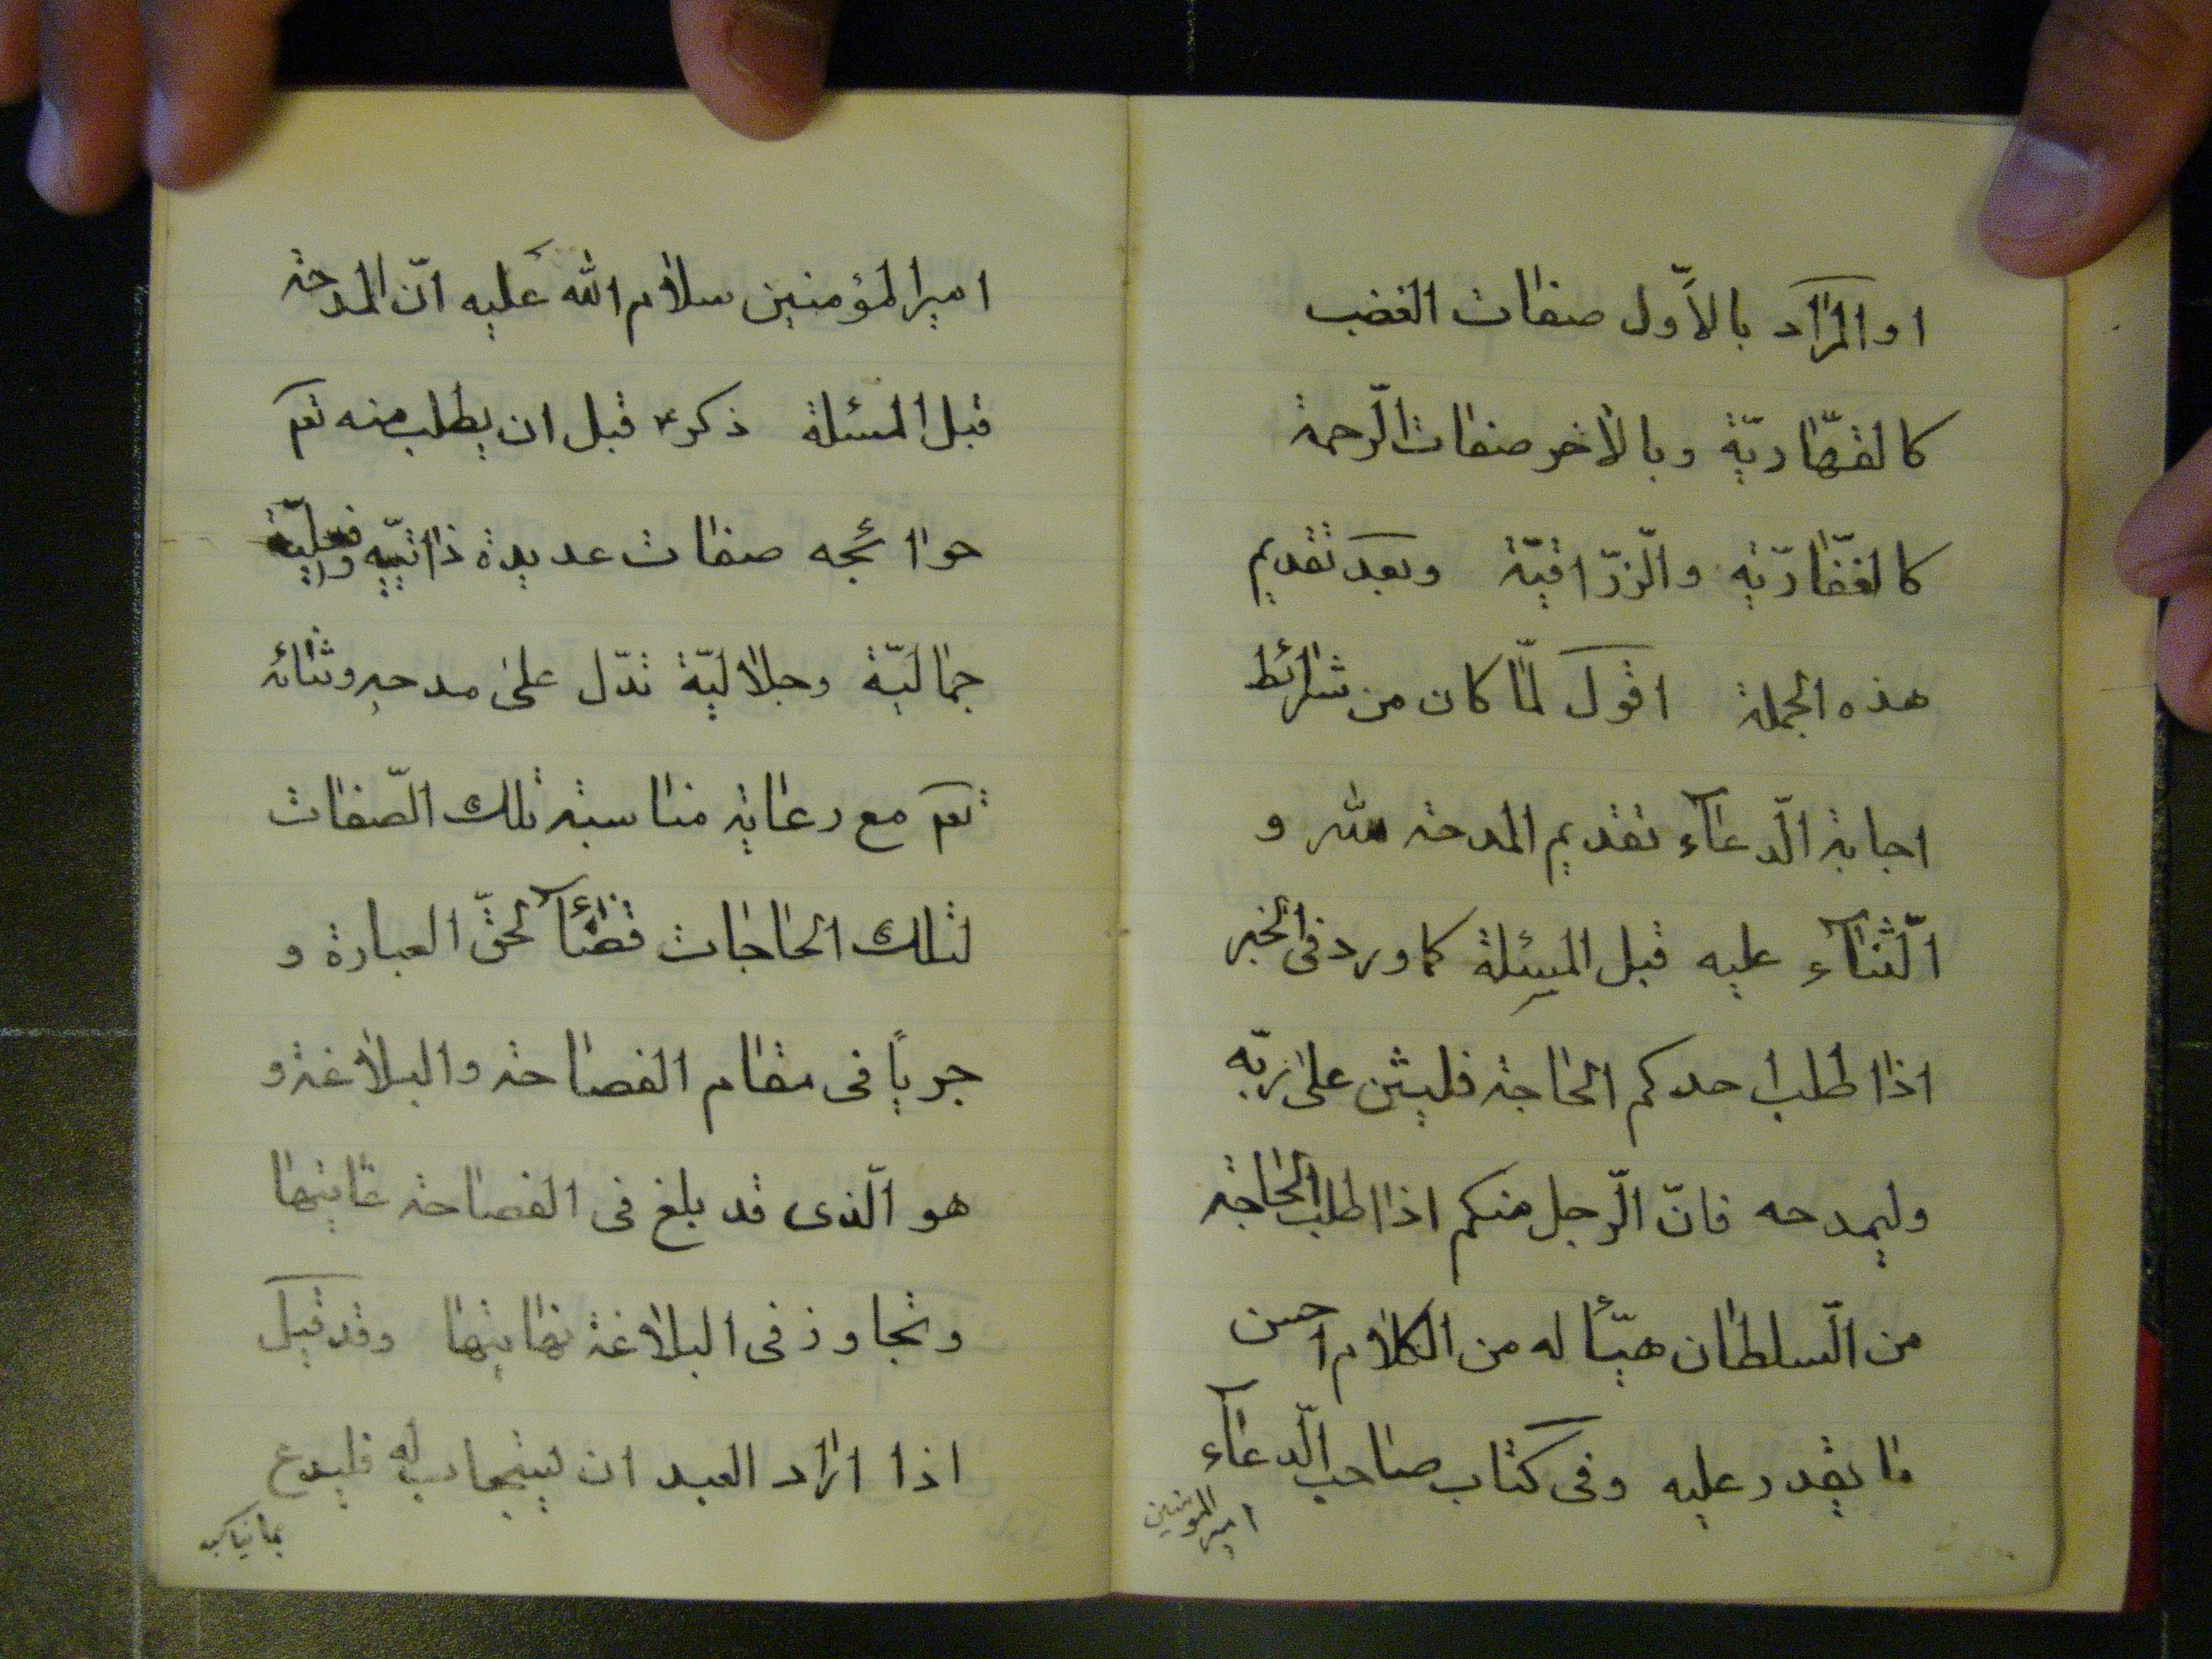 او المراد بالأوّل صفات الغضب
كالقهّاريّة وبالاخر صفات الرّحمة
كالغفّاريّة والرّزّاقيّة وبعد تقديم
هذه الجملة اقول لمّا كان من شرائط
اجابة الدّعآء تقديم المدحة لله و
الثّنآء عليه قبل المسئلة كما ورد فى الخبر
اذا طلب احدكم الحاجة فليثن على ربّه
وليمدحه فانّ الرّجل منكم اذا طلب الحاجة
من السّلطان هيّأ له من الكلام احسن
ما يقدر عليه وفى كتاب صاحب الدّعآء
امير المؤمنين
امير المؤمنين سلام الله عليه انّ المدحة
قبل المسئلة ذكرء قبل ان يطلب منه تعم
حوائجه صفات عديدة ذاتيّة وفعليّة
جماليّة وجلاليّة تدّل على مدحه وثنائه
تعم مع رعاية مناسبة تلك الصّفات
لتلك الحاجات قضآءً لحقّ العبارة و
جرياً فى مقام الفصاحة والبلاغة و
هو الّذى قد بلغ فى الفصاحة غايتها
وتجاوز فى البلاغة نهايتها وقد قيل
اذا اراد العبد ان يستجاب له فليدع
بما يناسبه